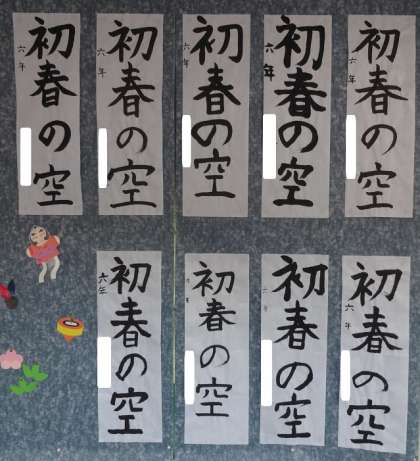 初春の空
六年
初春の空
六年
初春の空
六年
初春の空
六年
初春の空
六年
初春の空
六年
初春の空
初春の空
初春の空
六年